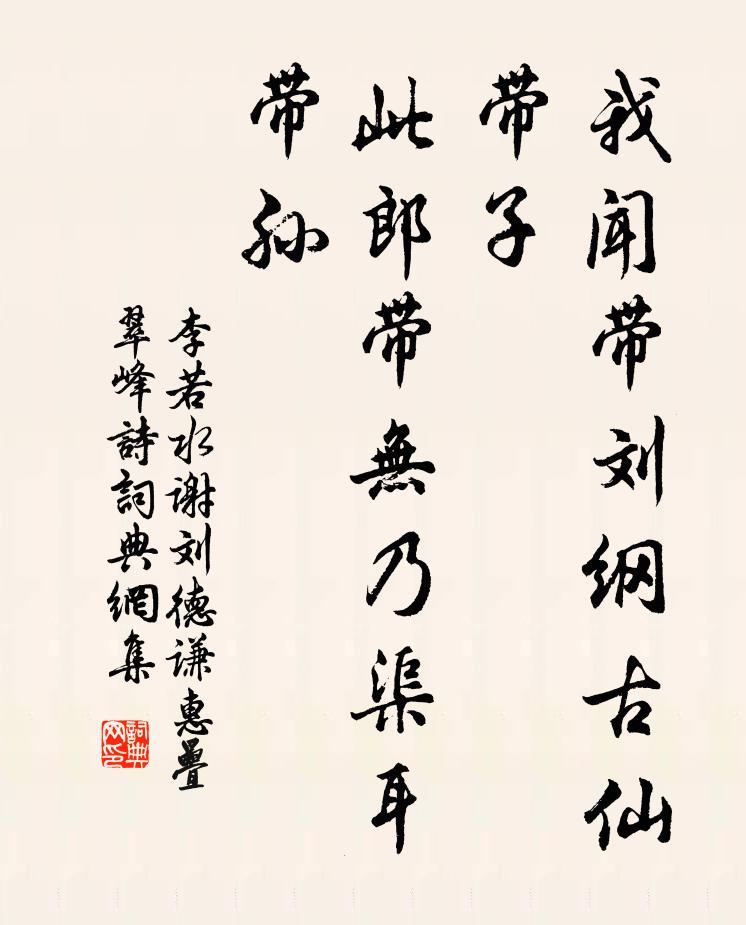 我闻带刘纲古仙
带子
此郎带無乃渠耳
带孙
李若水谢刘德谦惠疊
翠峰詩詞典網集
詞典
网印